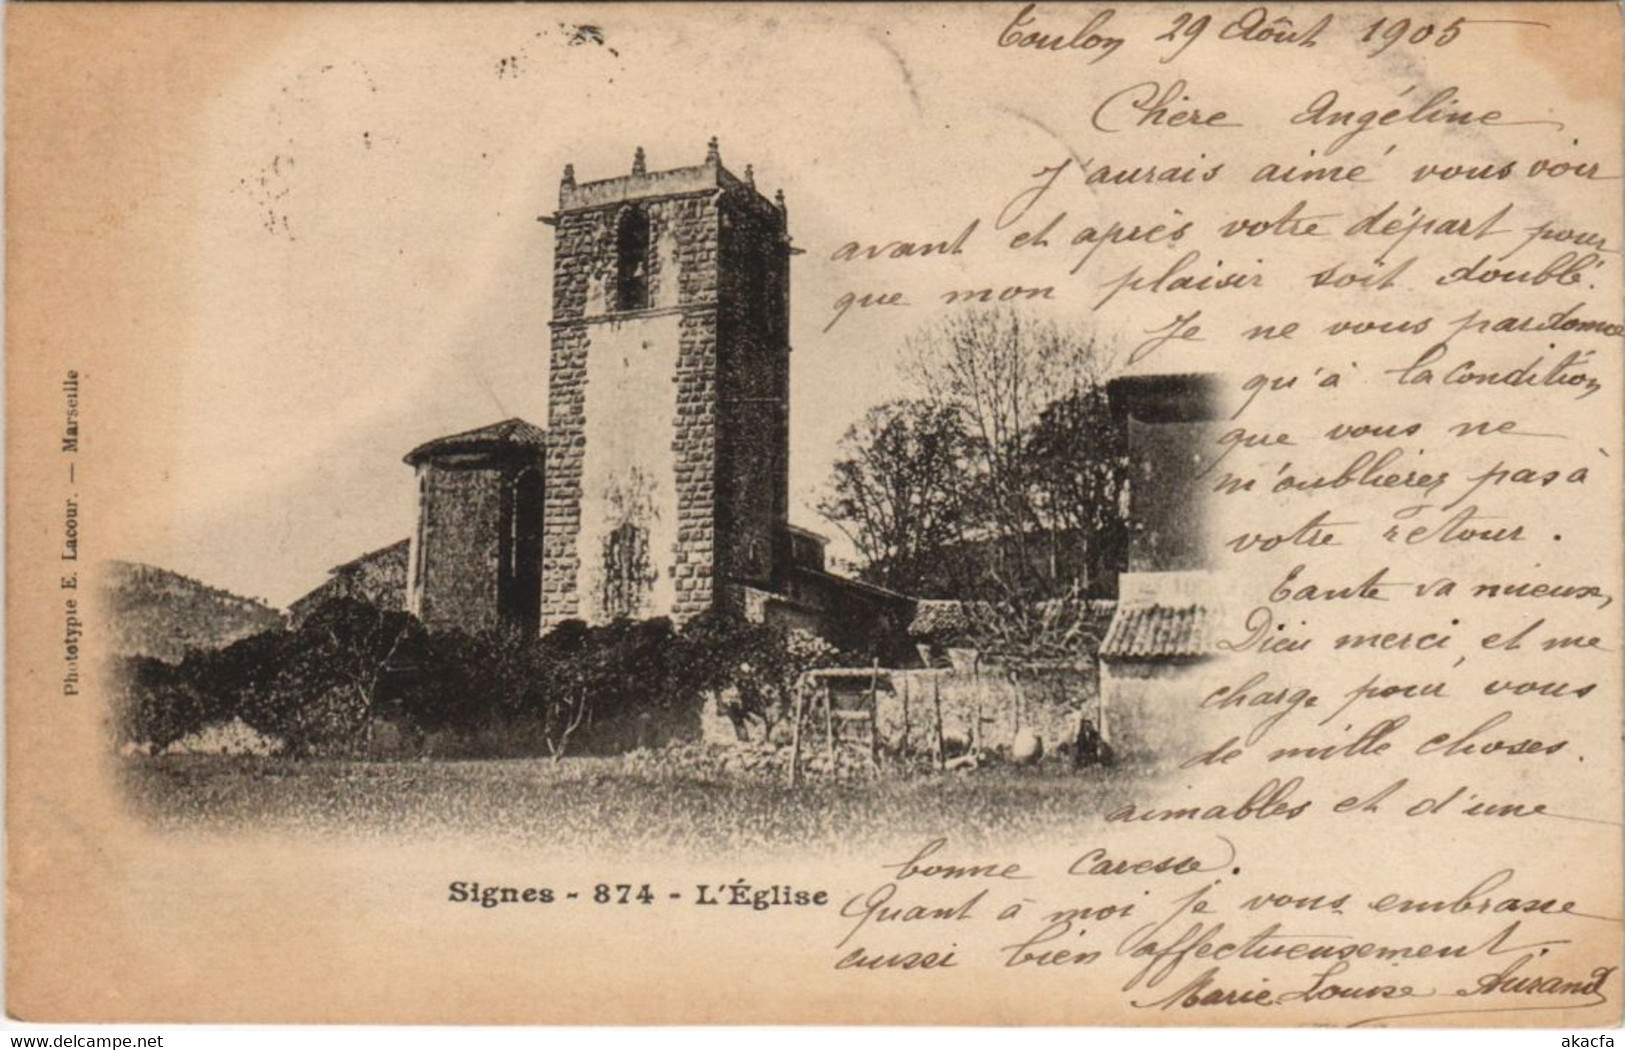 Toulon 29 Août 1905
Chère Angéline
J'aurais aimé vous voir
avant et après votre départ pour
que mon plaisir soit doublé.
Je ne vous pardonne
qu'à la condition
que vous ne
m'oublierez pas à
votre retour.
Tante va mieux,
Dieu merci, et me
charge pour vous
de mille choses
aimables et d'une
bonne caresse.
Quant à moi je vous embrasse
aussi bien affectueusement.
Marie-Louise
Signes - 874 - L'Église
Phototypie E. Lacour. — Marseille
akacfa